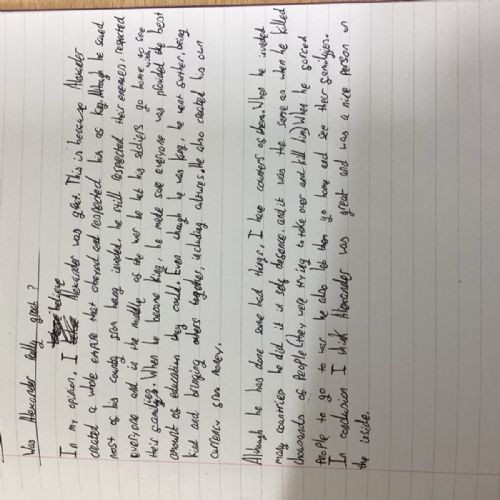 Was Alexander really great?
In my opinion, I believe Alexander was great. This is because Alexander
created a whole empire that obeyed and respected him as king. Although he saved
most of his country from being invaded, he still respected their enemies, respected
everyone and in the middle of the war he let his soldiers go home to see
their families. When he became king, he made sure everyone was provided with the best
amount of education they could. Even though he was king, he went further, being
kind and bringing others together, including cultures. He also created his own
currency from money.
Although he has done some bad things, I have counters of them. When he invaded
many countries he did it in self defense. and it was the same as when he killed
thousands of people (they were trying to take over and kill him) When he forced
people to go to war he also let them go home and see their familys.
In conclusion I think Alexander was great and was a nice person on
the inside.